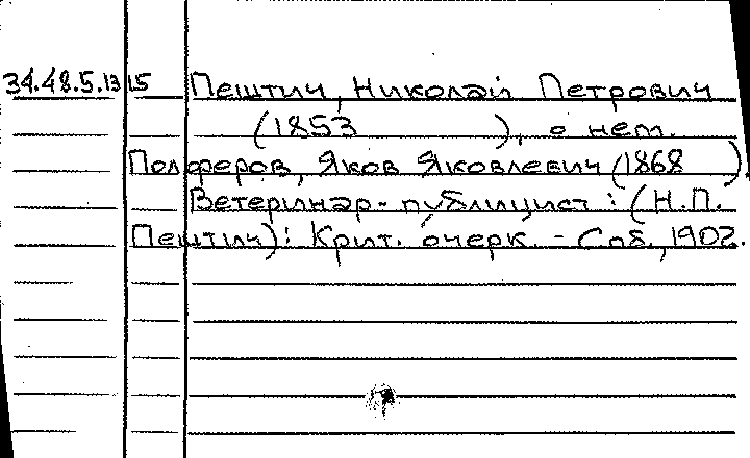 34.48.5.13 15 Пештич, Николай Петрович
(1853 ), о нем.
Полферов, Яков Яковлевич (1868 ).
Ветеринар-публицист : (Н.П.
Пештич): Крит. очерк. - Спб., 1902.